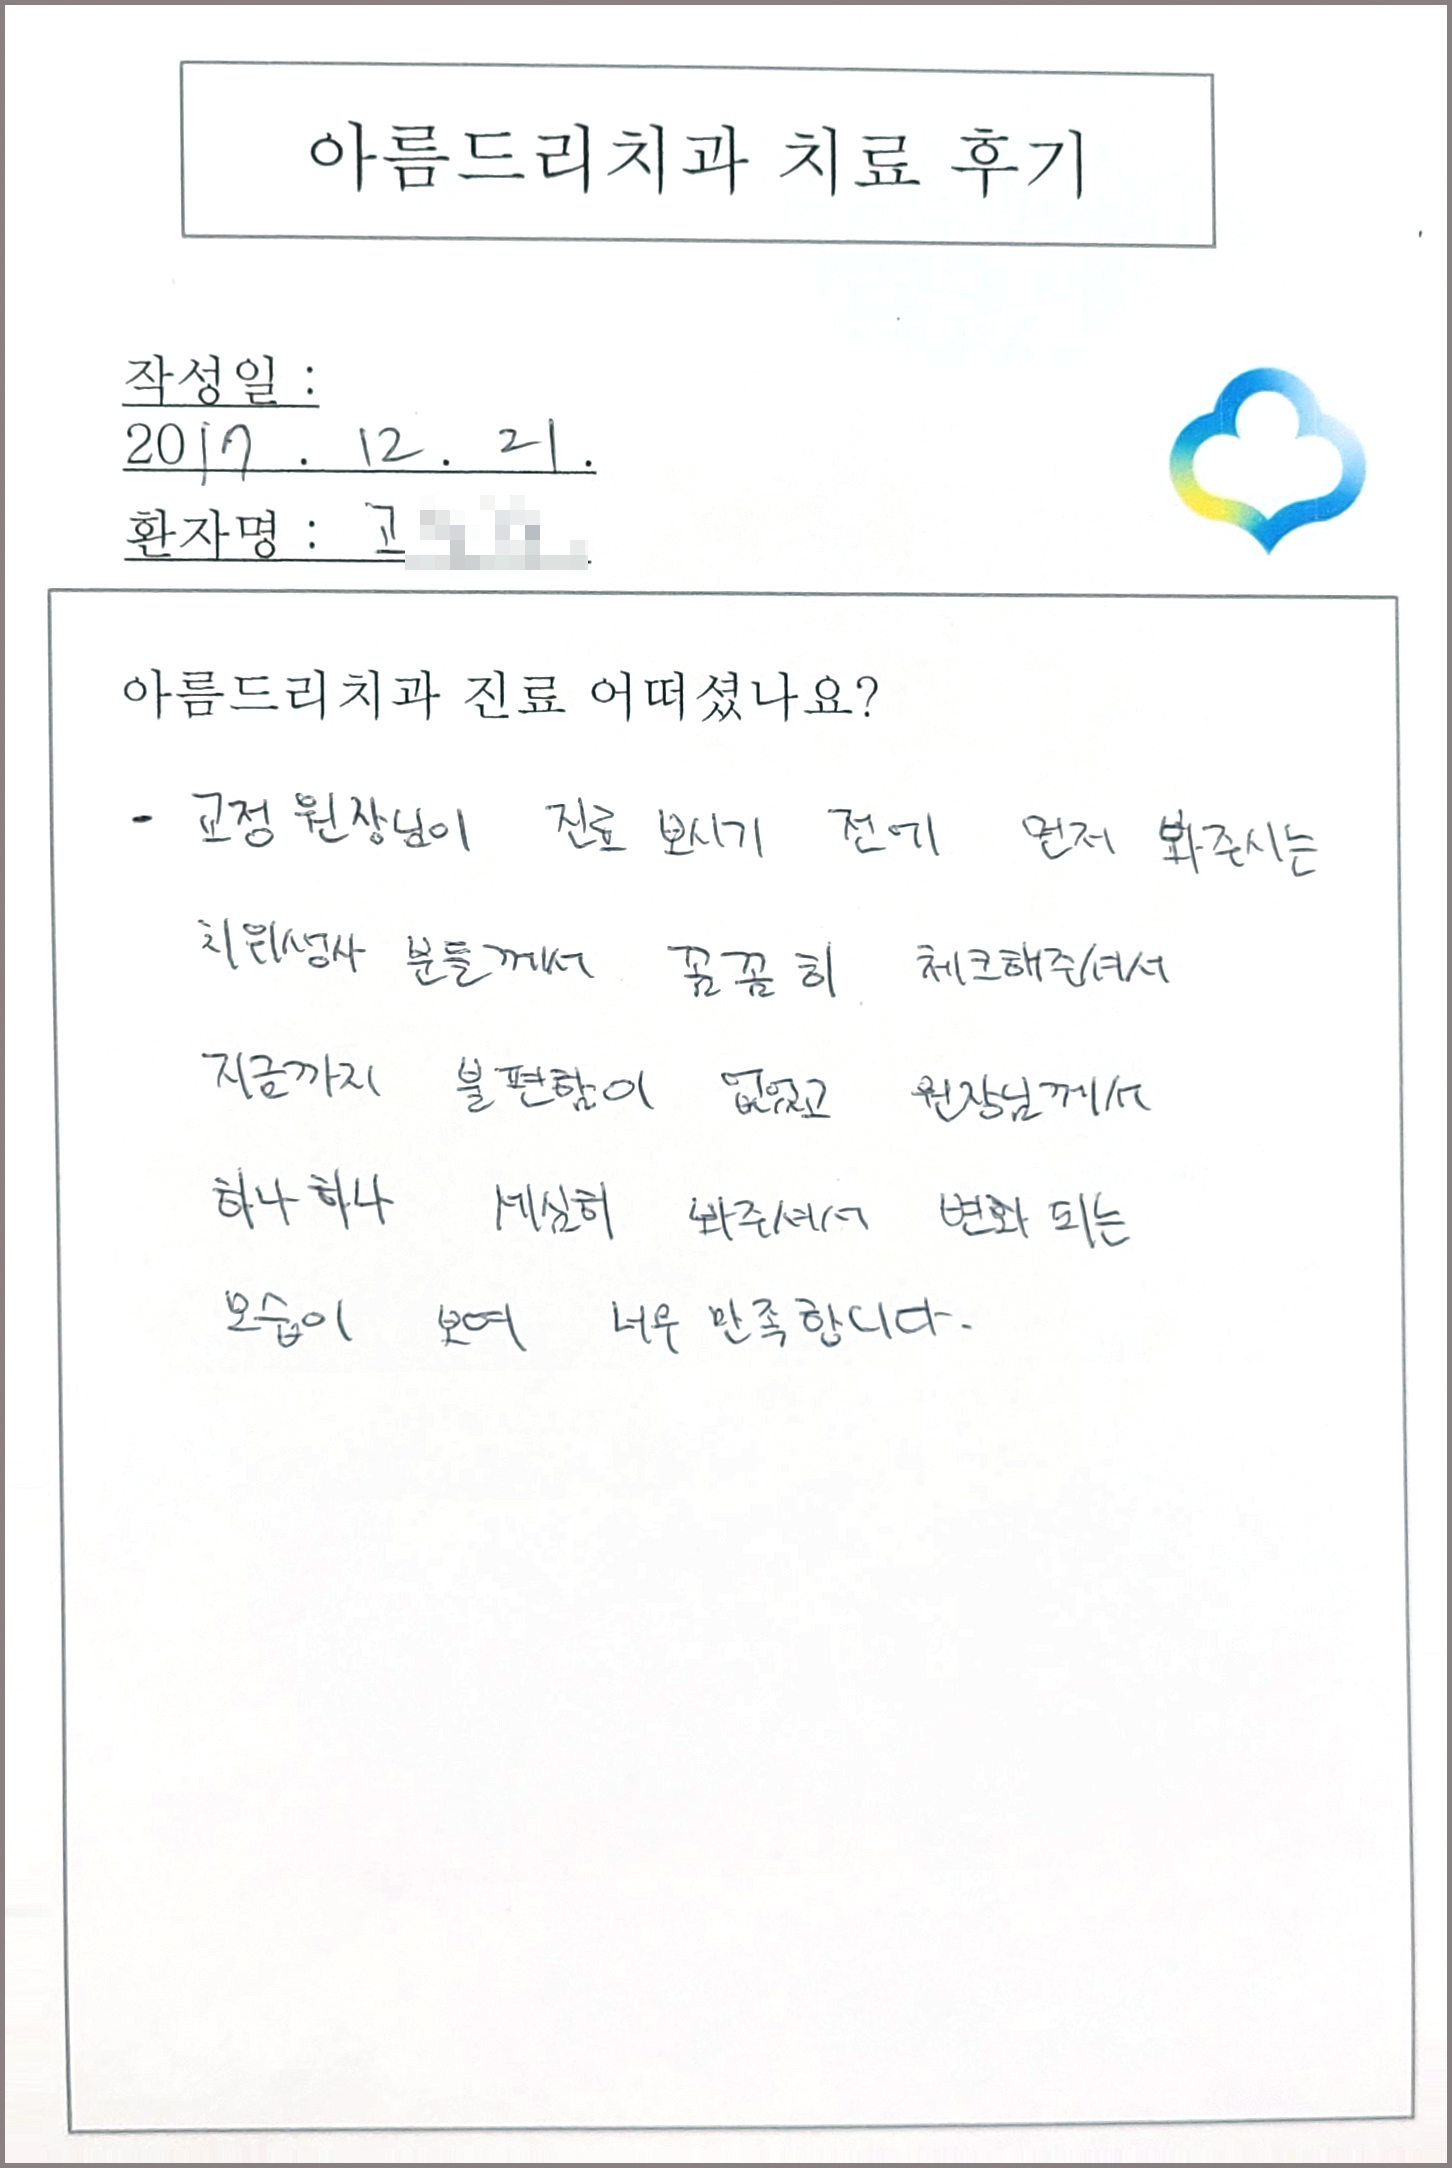 아름드리치과 치료 후기
작성일 :
2017 . 12 . 21 .
환자명 : 고
아름드리치과 진료 어떠셨나요?
- 교정 원장님이 진료 보시기 전에 먼저 봐주시는
치위생사 분들께서 꼼꼼히 체크해주셔서
지금까지 불편함이 없었고 원장님께서
하나하나 세심히 봐주셔서 변화 되는
모습이 보여 너무 만족합니다.